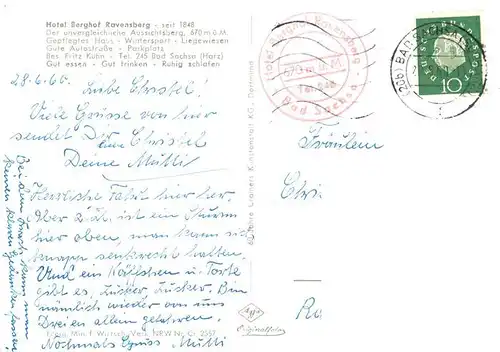 Hotel Berghof Ravensberg - seit 1848
Der unvergleichliche Aussichtsberg, 670 m ü. M.
Gepflegtes Haus - Wintersport - Liegewiesen
Gute Autostraße - Parkplatz
Bes. Fritz Kühn - Tel. 245 Bad Sachsa (Harz)
Gut essen - Gut trinken - Ruhig schlafen
28.6.60. Liebe Christel!
Viele Grüsse von hier
sendet Dir Christel
Deine Mutti
Herrliche Fahrt hier her.
Aber z.Zt. ist ein Sturm
hier oben, man kann sich
knapp senkrecht halten.
Und ein Käffchen u. Torte
gibt es, zucker, zucker. Bin
nämlich wieder von uns
Dreien allein gefahren.
Nochmals Gruss Mutti
Bei dem Krach kann man
keinen klaren Gedanken fassen.
Hotel Berghof Ravensberg
670 m ü. M.
Tel. 245
Bad Sachsa
BAD SACHSA
DEUTSCHE BUNDESPOST
10
Fräulein
Chri
Agfa
Originalfoto